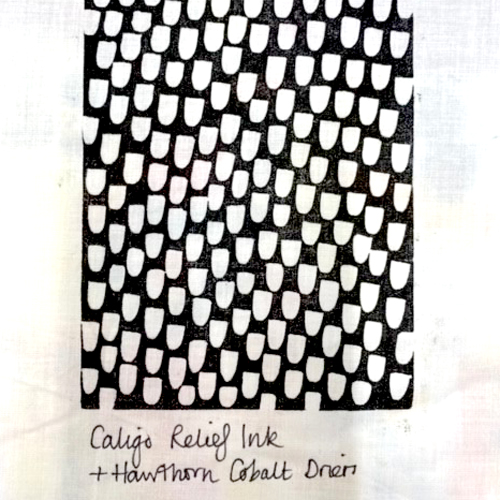 Caligo Relief Ink
+ Hawthorn Cobalt Driers